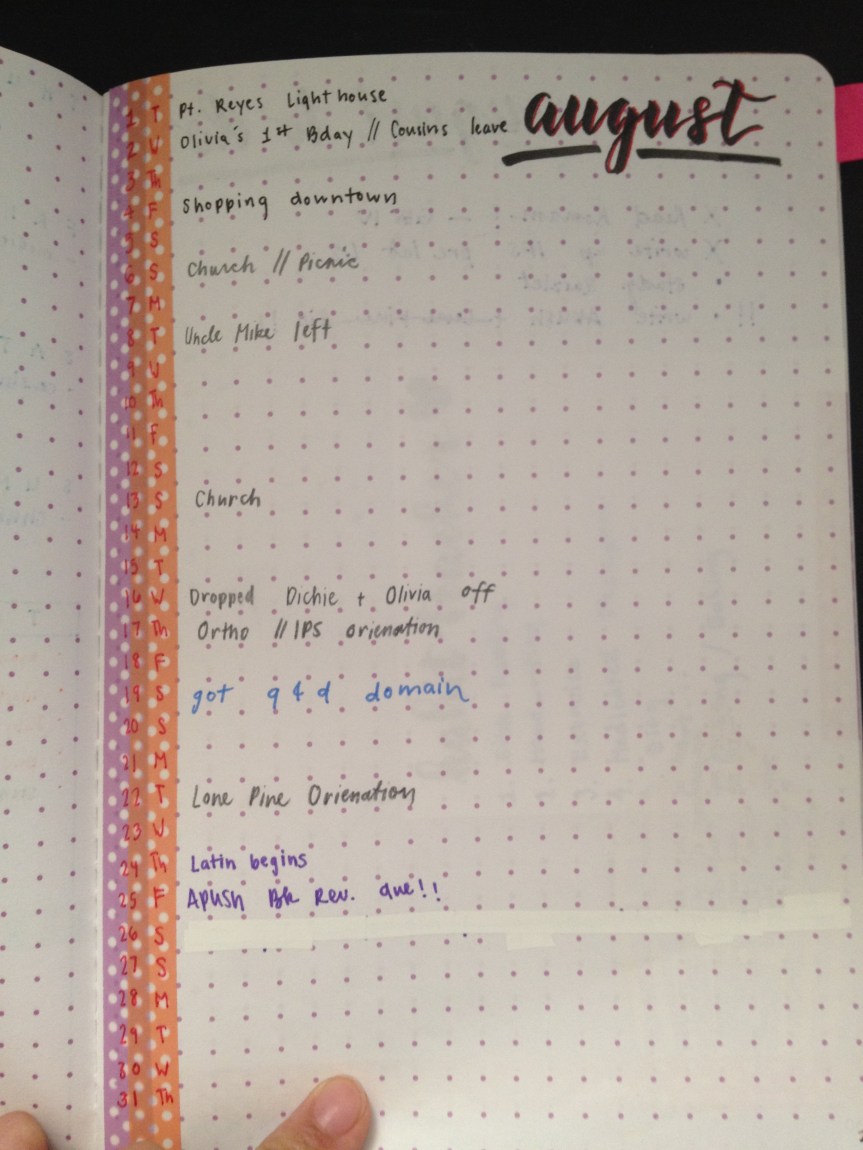 august
1 T Pt. Reyes Lighthouse
2 W Olivia's 1st Bday // Cousins leave
3 Th
4 F Shopping downtown
5 S
6 S Church // Picnic
7 M
8 T Uncle Mike left
9 W
10 Th
11 F
12 S
13 S Church
14 M
15 T
16 W Dropped Dichie + Olivia off
17 Th Ortho // IPS orienation
18 F
19 S got q & d domain
20 S
21 M
22 T Lone Pine Orienation
23 W
24 Th Latin begins
25 F APUSH Bk Rev. due!!
26 S
27 S
28 M
29 T
30 W
31 Th